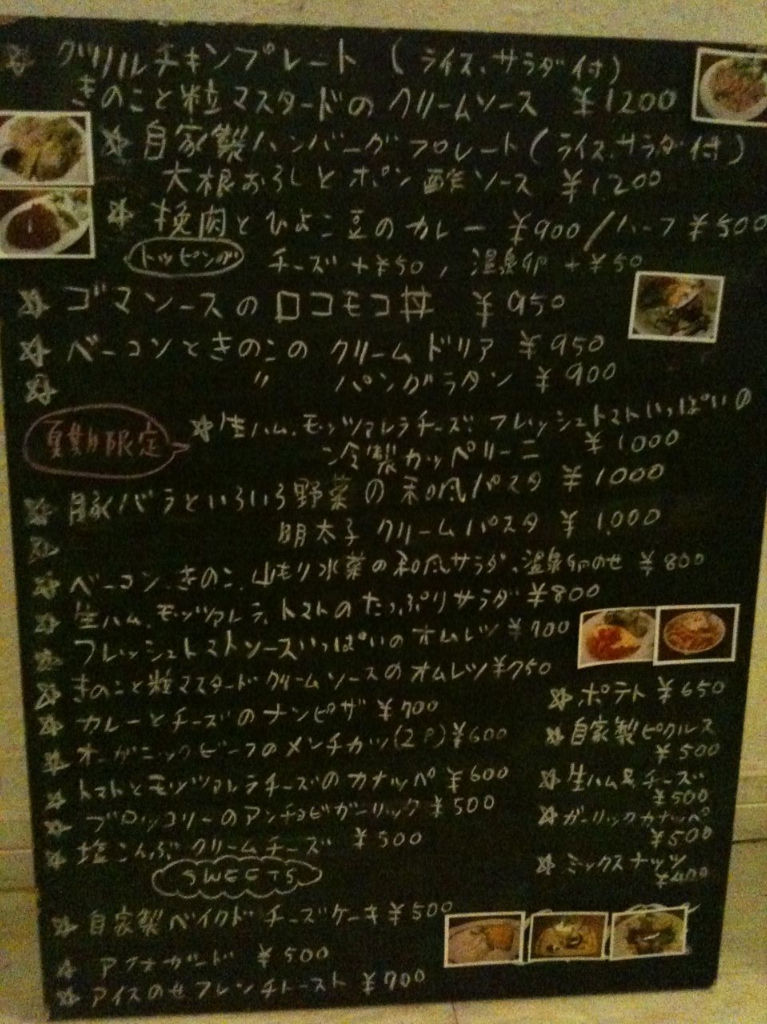 グリルチキンプレート (ライス、サラダ付)
きのこと粒マスタードのクリームソース ¥1200
自家製ハンバーグプレート(ライス、サラダ付)
大根おろしとポン酢ソース ¥1200
挽肉とひよこ豆のカレー ¥900/ハーフ¥500
トッピング チーズ+¥50, 温泉卵+¥50
ゴマソースのロコモコ丼 ¥950
ベーコンときのこのクリームドリア ¥950
〃 パングラタン ¥900
夏期限定
生ハム、モッツァレラチーズ、フレッシュトマトいっぱいの
冷製カッペリーニ ¥1000
豚バラといろいろ野菜の和風パスタ ¥1000
明太子クリームパスタ ¥1,000
ベーコン、きのこ、山もり水菜の和風サラダ、温泉卵のせ ¥800
生ハム、モッツァレラ、トマトのたっぷりサラダ ¥800
フレッシュトマトソースいっぱいのオムレツ ¥700
きのこと粒マスタードクリームソースのオムレツ ¥750
カレーとチーズのナンピザ ¥700
オーガニックビーフのメンチカツ(2P) ¥600
トマトとモッツァレラチーズのカナッペ ¥600
ブロッコリーのアンチョビガーリック ¥500
塩こんぶクリームチーズ ¥500
ポテト ¥650
自家製ピクルス
¥500
生ハム&チーズ
¥500
ガーリックカナッペ
¥500
ミックスナッツ
¥400
SWEETS
自家製ベイクドチーズケーキ ¥500
¥500
アイスのせフレンチトースト ¥700